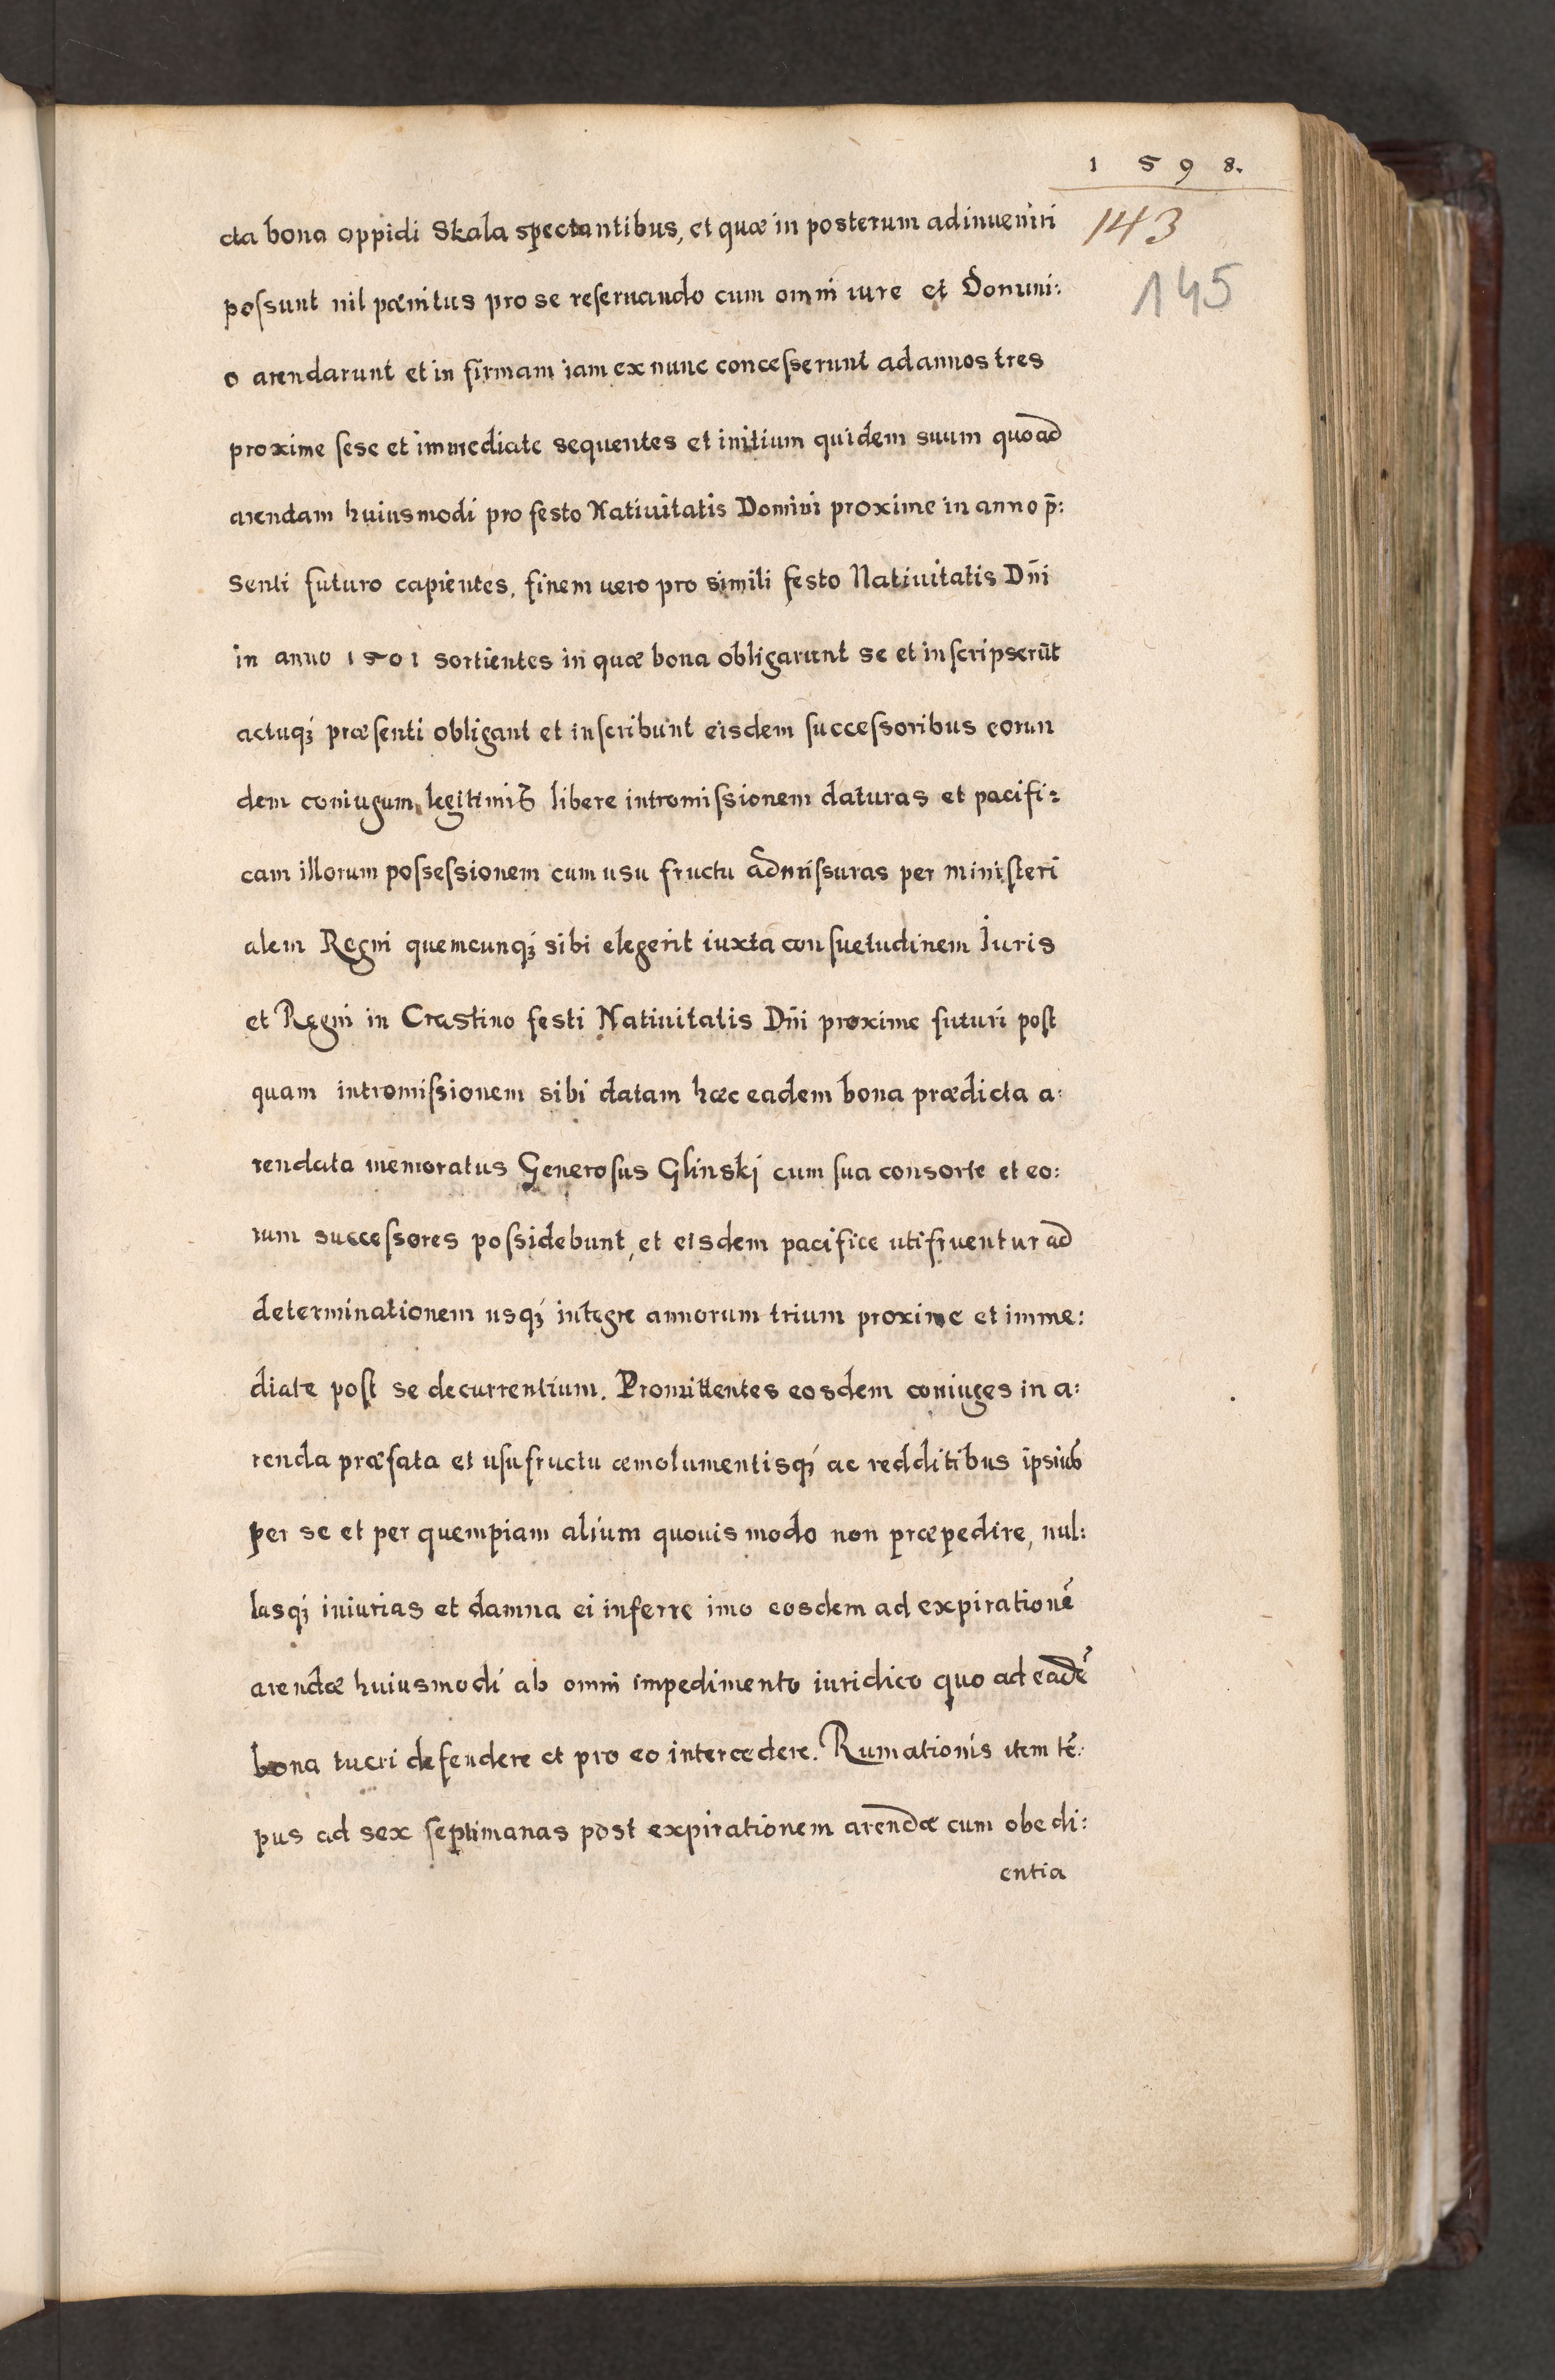 1 5 9 8.
143
145
cta bona oppidi Skala spectantibus, et quæ in posterum adinueniri
poſsunt nil pænitus pro se reſeruando cum omni iure et Domini:
o arendarunt et in firmam iam ex nunc conceſserunt ad annos tres
proxime ſese et immediate sequentes et initium quidem suum quoad
arendam huiusmodi pro festo Natiuitatis Domini proxime in anno p̄:
senti futuro capientes, finem uero pro simili festo Natiuitatis Dn̄i
in anno 1501 sortientes in quæ bona obligarunt se et inſcripserūt
actuqȝ præſenti obligant et inſcribunt eisdem ſucceſsoribus eorun
dem coniugum legitimis libere intromiſsionem daturas et pacifi:
cam illorum poſseſsionem cum usu fructu admiſsuras per miniſteri
alem Regni quemcunqȝ sibi elegerit iuxta conſuetudinem Iuris
et Regni in Crastino festi Natiuitatis Dn̄i proxime futuri poſt
quam intromiſsionem sibi datam hæc eadem bona prædicta a:
rendata memoratus Generoſus Glinskj cum ſua consorte et eo:
rum succeſsores poſsidebunt, et eisdem pacifice utifruentur ad
determinationem usqȝ integre annorum trium proxime et imme:
diate poſt se decurrentium. Promittentes eosdem coniuges in a:
renda præfata et uſufructu æmolumentisqȝ ac redditibus ipsius
per se et per quempiam alium quouis modo non præpedire, nul:
lasqȝ iniurias et damna ei inferre imo eosdem ad expirationē
arendæ huiusmodi ab omni impedimento iuridico quo ad eadē
bona tueri defendere et pro eo intercedere. Rumationis item tē:
pus ad sex ſeptimanas post expirationem arendæ cum obedi:
entia